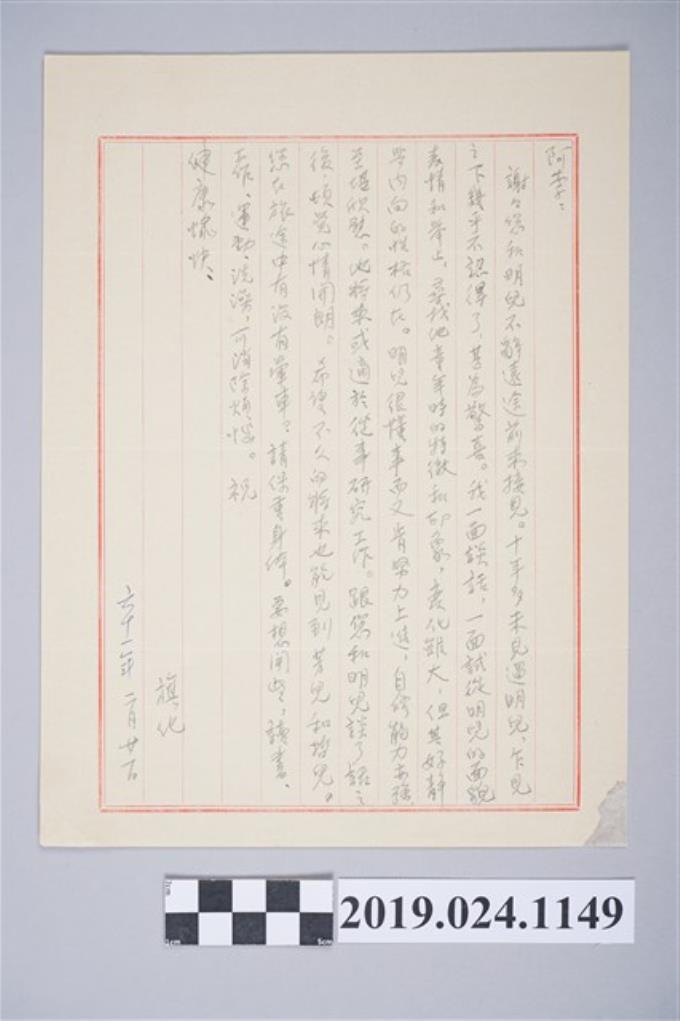 阿李：
謝々您和明兒不辭遠途前來接見。十年多未見過明兒，乍見
之下幾乎不認得了，甚為驚喜。我一面談話，一面試從明兒的面貌
表情和舉止，尋找他童年時的特徵和印象，變化雖大，但其好靜
內向的性格仍在。明兒很懂事而又肯努力上進，自修能力亦強
至堪欣慰。他將來或適於從事研究工作。跟您和明兒談了話之
後，頓覺心情開朗。希望不久的將來也能見到芳兒和哲兒。
您在旅途中有沒有暈車？請保重身体。要想開些，讀書、
工作、運動、洗澡，可消除煩惱。祝
健康愉快、
旗化
六十一年二月廿日
2019.024.1149
1cm
5cm